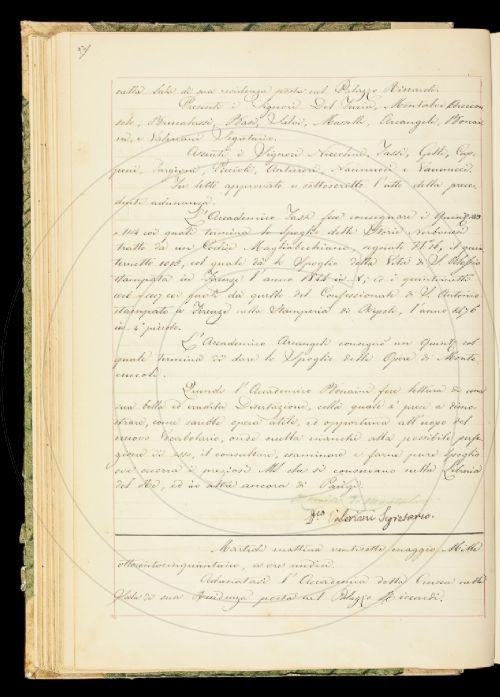 nella Sala di sua residenza posta nel Palazzo Riccardi.
Presenti i Signori Del Furia, Montalvi, Becconsole,
Brucalassi, Basi, Salvi, Masselli, Arcangeli, Bonaini,
e Valeriani Segretario.
Assenti i Signori Niccolini, Tassi, Gelli, Capponi,
Targioni, Puccioli, Antinori, Nannucci e Vannucci.
Fu letto approvato e sottoscritto l'atto della precedente
adunanza.
L'Accademico Tassi fece consegnare i Quint. 103
e 104 coi quali termina lo spoglio delle Storie Nerbonesi
tratto da un Codice Magliabechiano, segnato
il quinternetto 1012, col quale dà lo Spoglio della Vita di S.
stampata in Firenze l'anno in 8; ed i quinternetti
coi quali dà quello del Confessionale di S. Antonino
stampato a Firenze nella Stamperia di Ripoli, l'anno 1476
in 4° piccolo.
L'Accademico Arcangeli consegnò un Quint. col
quale termina di dare lo Spoglio delle Opere di Montecuccoli.
Quindi l'Accademico Bonaini fece lettura di una
sua bella ed erudita Dissertazione, colla quale si fece a dimostrare,
come sarebbe opera utile, ed opportuna all'uopo del
nuovo Vocabolario, onde nulla manchi alla possibile perfezione
di esso, il consultare, esaminare e farne pure spoglio
ove occorra i preziosi MS che si conservano nella Libreria
del Re, ed in altre ancora di Parigi.
Valeriani Segretario.
Martedì mattina ventisette maggio Mille
ottocentocinquantuno, a ore undici.
Adunatasi l'Accademia della Crusca nella
Sala di sua Residenza posta nel Palazzo Riccardi.